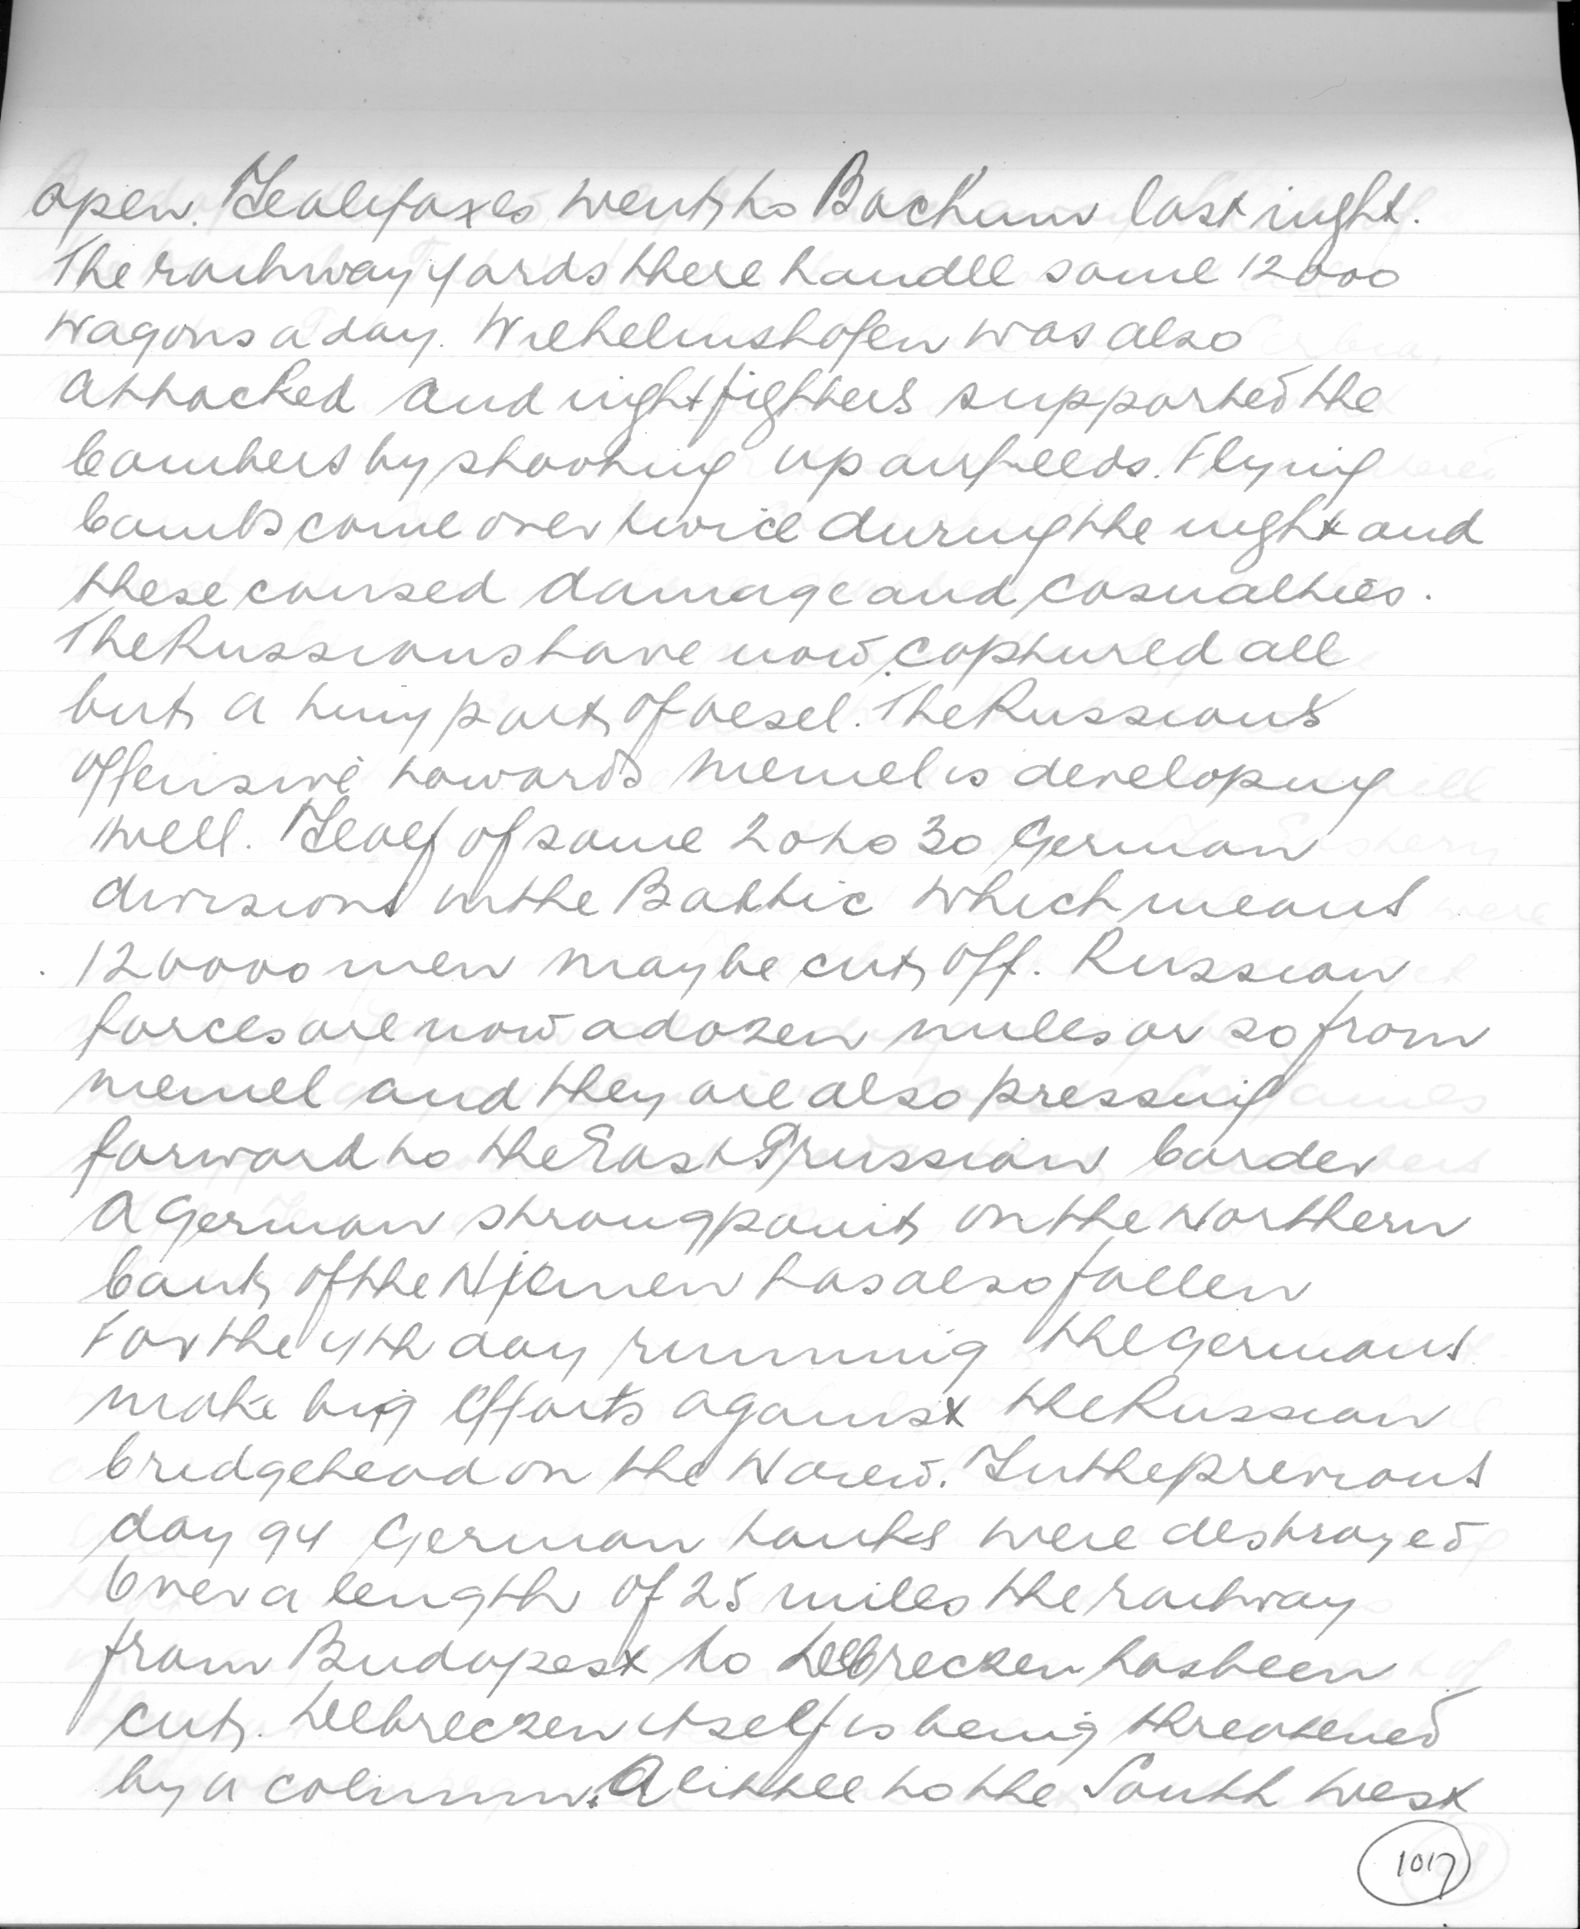 open. Halifaxes went to Bochum last night.
The railway yards there handle some 12000
wagons a day. Wilhelmshafen was also
attacked and night fighters supported the
bombers by shooting up airfields. Flying
bombs come over twice during the night and
these caused damage and casualties.
The Russians have now captured all
but a tiny part of Oesel. The Russians
offensive towards Memel is developing
well. Half of some 20 to 30 German
divisions in the Baltic which means
120000 men may be cut off. Russian
forces are now a dozen miles or so from
Memel and they are also pressing
forward to the East Prussian border
A German strongpoint on the Northern
bank of the Njemen has also fallen
For the 4th day running the Germans
make big efforts against the Russian
bridgehead on the Narew. In the previous
day 94 German tanks were destroyed
Over a length of 25 miles the railway
from Budapest to Debreczen has been
cut. Debreczen itself is being threatened
by a column. A little to the South West
1017